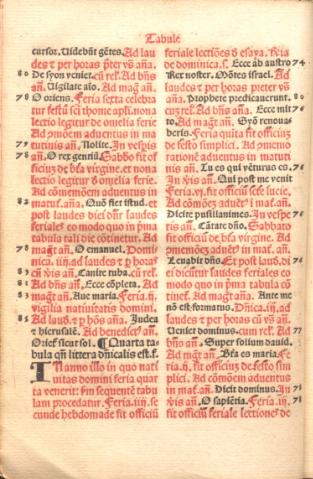 Tabule
cursor. Videbūt gētes. Ad lau
des ⁊ per horas p̄ter v̄s añ̄a.
80 De syon veniet. cū rel'. Ad bn̄s
añ. Vigilate aīo. Ad mag̃t añ.
78 O oriens. Feria sexta celebra
tur festū scti thome apli. non a
lectio legitur de omelia ferie
Ad cōmōem aduentus in ma
77 tutinis añ. Nolite. In vespis
78 añ. O rex gentiū. Sabbō fit of
ficiuȝ de btā virgine. et nona
lectio legitur d omelia ferie.
Ad cōmemōem aduentus in
82 matut. aña. Quō fiet istud. et
post laudes dici dn̄r laudes
feriales eo modo quo in p̄ma
tabula tali die cōtinetur. Ad
78 mag̃t añ. O emanuel. Domi
nica. iiij. ad laudes ⁊ p horas
82 cū v̄is añ. Canite tuba. cū rel'.
81 Ad bn̄s añ. Ecce cōpleta. Ad
83 mag̃t añ. Aue maria. Feria. ij.
vigilia natiuitatis domini.
85 Ad laud. ⁊ p hōas aña. Judea
⁊ hierusalē. Ad benedict' añ.
Orief sicut sol. ¶ Quarta ta-
bula qn̄ littera dn̄icalis est. f.
IN anno illo in quo nati
uitas domini feria quar
ta venerit: hm sequentē tabu
lam procedatur. Feria. iij. se
cunde hebdomade fit officiū
feriale lectiōes d esaya. Feria
de dominica. s. Ecce ab austro 74
Rex noster. Mōtes israel. Ad
laudes ⁊ per horas preter v̄s
aña. Prophete predicauerunt. 80
Ecce miet. O 76
to. Ad mag̃t añ. Syō renoua-
beris. Feria quīta fit officiuȝ
de festo simplici. Ad mēmo
rationē aduentus in matuti
nis añ. Tu es qui vēturus es. 71
In v̄is añ. Qui post me venit 71
Feria. vj. fit officiū scte lucie.
Ad cōmōeȝ aduēt' ī mat. añ.
Dicite pusillanimes. In vespe 71
ris añ. Cātate dn̄o. Sabbato 71
fit officiū de btā virgine. Ad
mēmōeȝ aduēt' in mat. añ.
Leuabit dn̄s. Et post laud. di 71
ci dicūtur laudes feriales eo
modo quo in p̄ma tabula cō
tinet. Ad mag̃t aña. Ante me 71
nō est formatus. Dn̄ica. iij. ad
laudes ⁊ per horas cū v̄s añ.
Veniet dominus. cum rel'. Ad 77
bn̄s añ. Super solium dauid. 77
Ad mag̃t añ. Btā es maria. Fe 77
ria. ij. fit officiuȝ de festo sim
plici. Ad cōmōem aduentus
in mat. añ. Dicit dominus. In 71
v̄is añ. O sapiētia. Feria. iij. 71
fit officiū feriale lectiones de